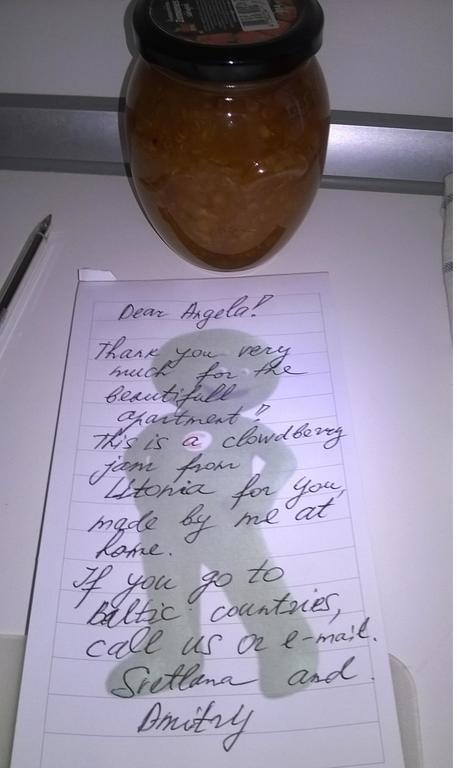 Dear Angela!
Thank you very
much for the
beautifull
apartment!
This is a clowdberry
jam from
Litonia for you,
made by me at
home.
If you go to
baltic countries,
call us or e-mail.
Svetlana and
Dmitry